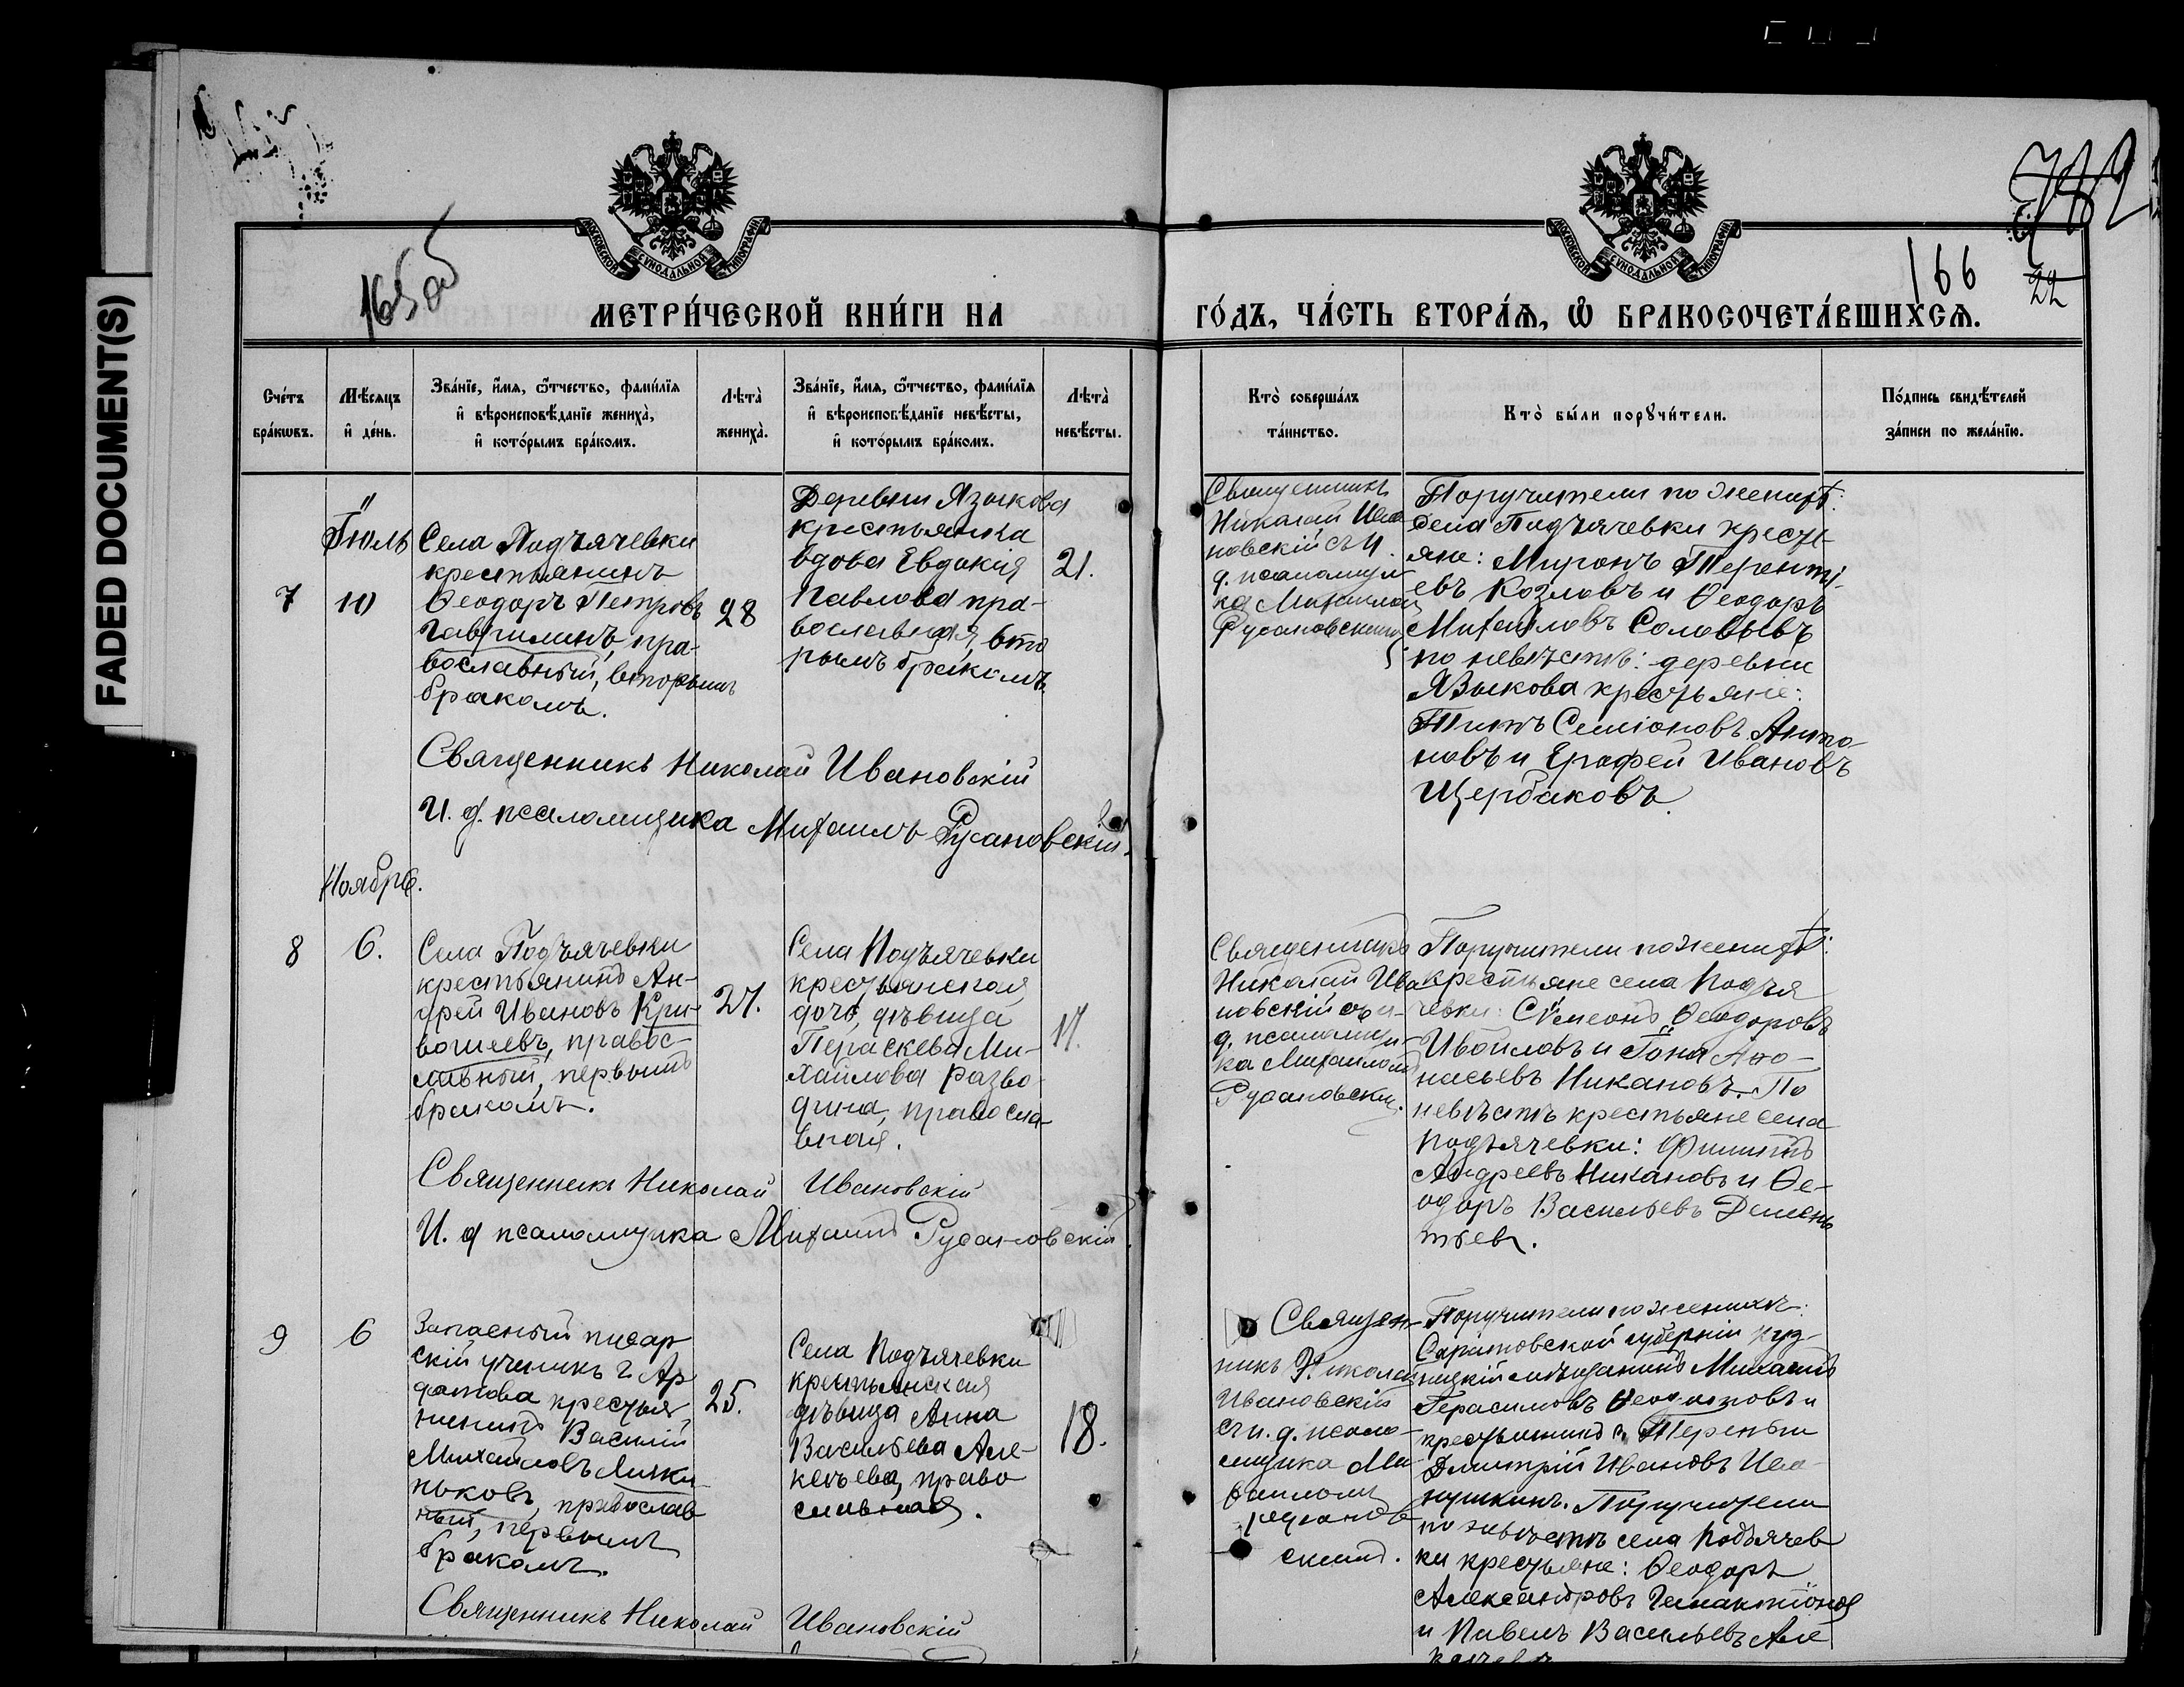 FADED DOCUMENT(S)
165 об
МОСКОВСКОЙ СѴНОДАЛЬНОЙ ТИПОГРАФІИ
МОСКОВСКОЙ СѴНОДАЛЬНОЙ ТИПОГРАФІИ
166
22
МЕТРИ́ЧЕСКОЙ КНИ́ГИ НА
ГО́ДЪ, ЧА́СТЬ ВТОРА́Ѧ, Ѡ҆ БРАКОСОЧЕТА́ВШИХСѦ.
Сче́тъ
бра́кѡвъ.
Мѣ́сяцъ
и҆ де́нь.
Зва́нїе, и҆́мя, ѻ҆́тчество, фами́лїя
и҆ вѣроисповѣ́данїе жениха̀,
и҆ кото́рымъ бра́комъ.
Лѣта̀
жениха̀.
Зва́нїе, и҆́мя, ѻ҆́тчество, фами́лїя
и҆ вѣроисповѣ́данїе невѣ́сты,
и҆ кото́рымъ бра́комъ.
Лѣта̀
невѣ́сты.
Кто̀ соверша́лъ
та́инство.
Кто̀ бы́ли порꙋчи́тели.
По́дпись свидѣ́телей
за́писи по жела́нїю.
7
Іюль
10
Села Подъячевки
крестьянинъ
Ѳеодоръ Петровъ
Гаврилинъ, пра-
вославный, вторымъ
бракомъ.
28
Деревни Языкова
крестьянка
вдова Евдокія
Павлова пра-
вославная, вто
рымъ бракомъ
21.
Священникъ
Николай Ива
новскій съ и.
д. псаломщи
ка Михаиломъ
Русановскимъ
Поручители по женихѣ:
села Подъячевки кресть
яне: Миронъ Терентi-
евъ Козловъ и Ѳеодоръ
Михайловъ Соловьевъ
по невѣстѣ: деревни
Языкова крестьяне:
Титъ Семіоновъ Анто-
новъ и Ерофей Ивановъ
Щербаковъ.
Священникъ Николай Ивановскій
И. д. псаломщика Михаилъ Русановскій.
Ноябрь.
8
6.
Села Подъячевки
крестьянинъ Ан-
дрей Ивановъ Кри-
вошеевъ, правос-
лавный, первымъ
бракомъ.
27.
Села Подъячевки
крестьянская
дочь, дѣвица
Параскева Ми-
хайлова Разво-
дина, правосла-
вная.
17.
Священникъ
Николай Ива
новскій съ и-
д. псаломщи-
ка Михаиломъ
Русановским.
Поручители по женихѣ:
крестьяне села Подъя
чевки: Сѵмеонъ Ѳеодоровъ
Ивойловъ и Іона Аѳо-
насьевъ Никановъ. По
невѣстѣ крестьяне села
Подъячевки: Филиппъ
Андреевъ Никановъ и Ѳе-
одоръ Васильевъ Демень
тьевъ.
Священникъ Николай Ивановскій
И. д псаломщика Михаилъ Русановскій.
9
6
Запасный писар
скій ученикъ г. Ар
датова крестья
нинъ Василій
Михайловъ
православ
ный, первымъ
бракомъ.
25.
Села Подъячевки
крестьянская
дѣвица Анна
Васильева Але-
ксѣева, право
славная.
18.
Священ-
никъ Николай
Ивановскій
съ и. д. псало-
мщика Ми-
хаиломъ
Русанов
скимъ.
Поручители по женихѣ:
Саратовской губерніи куз-
нецкій мѣщанинъ Михаилъ
Герасимовъ и
крестьянинъ с.
Дмитрій Ивановъ
Поручители
по невѣстѣ села Подъячев
ки крестьяне: Ѳеодоръ
Александровъ
и Павелъ Васильевъ Але
Священникъ Николай Ивановскій